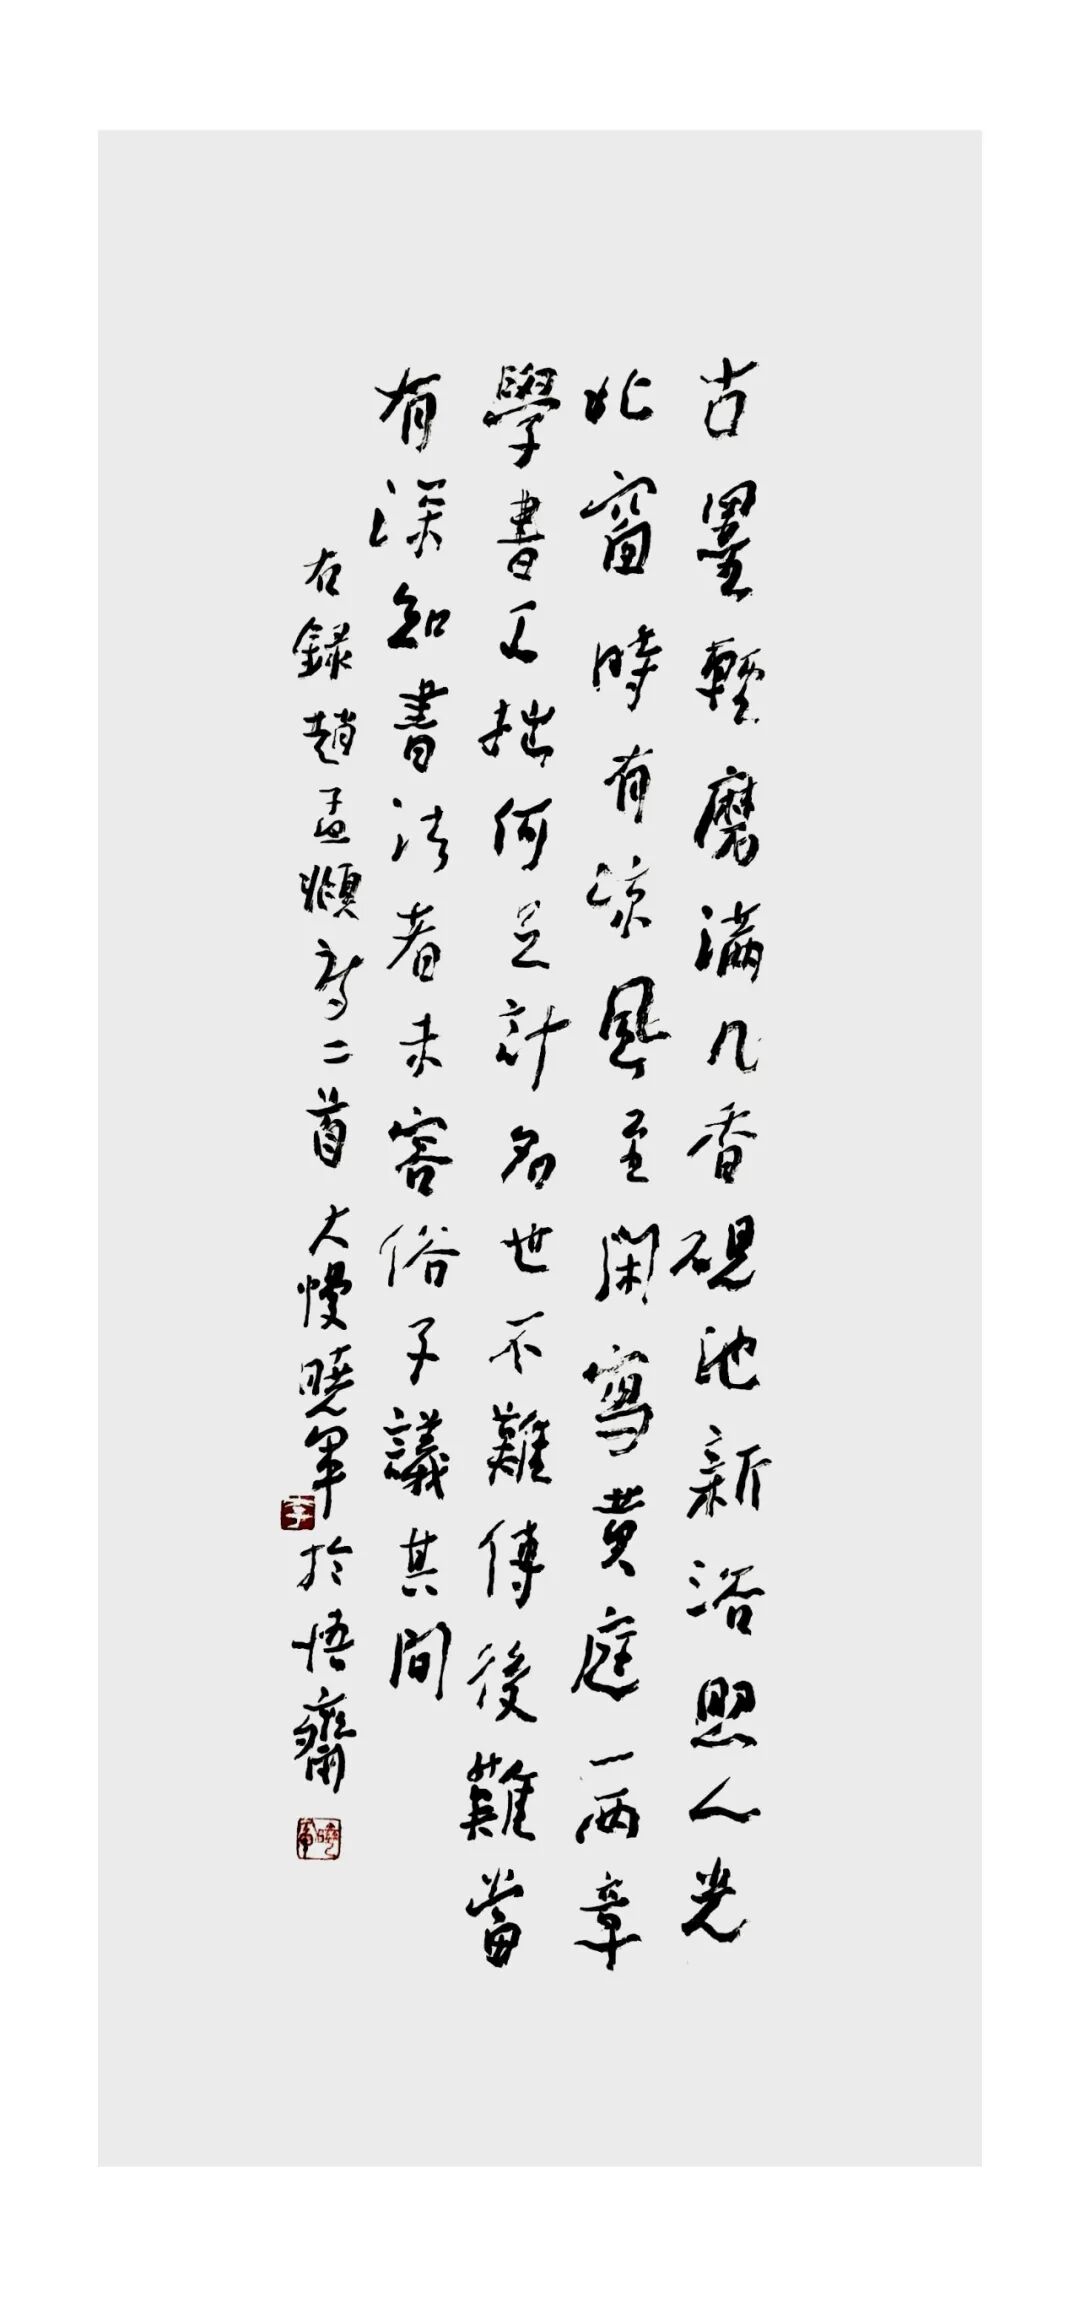 古墨輕磨滿几香硯池新浴照人光
北窗時有涼風至閑寫黃庭一兩章
學書工拙何足計名世不難傳後難當
有深知書法者未容俗子議其間
右錄趙孟頫詩二首大慢曉軍於悟齋
李
曉軍